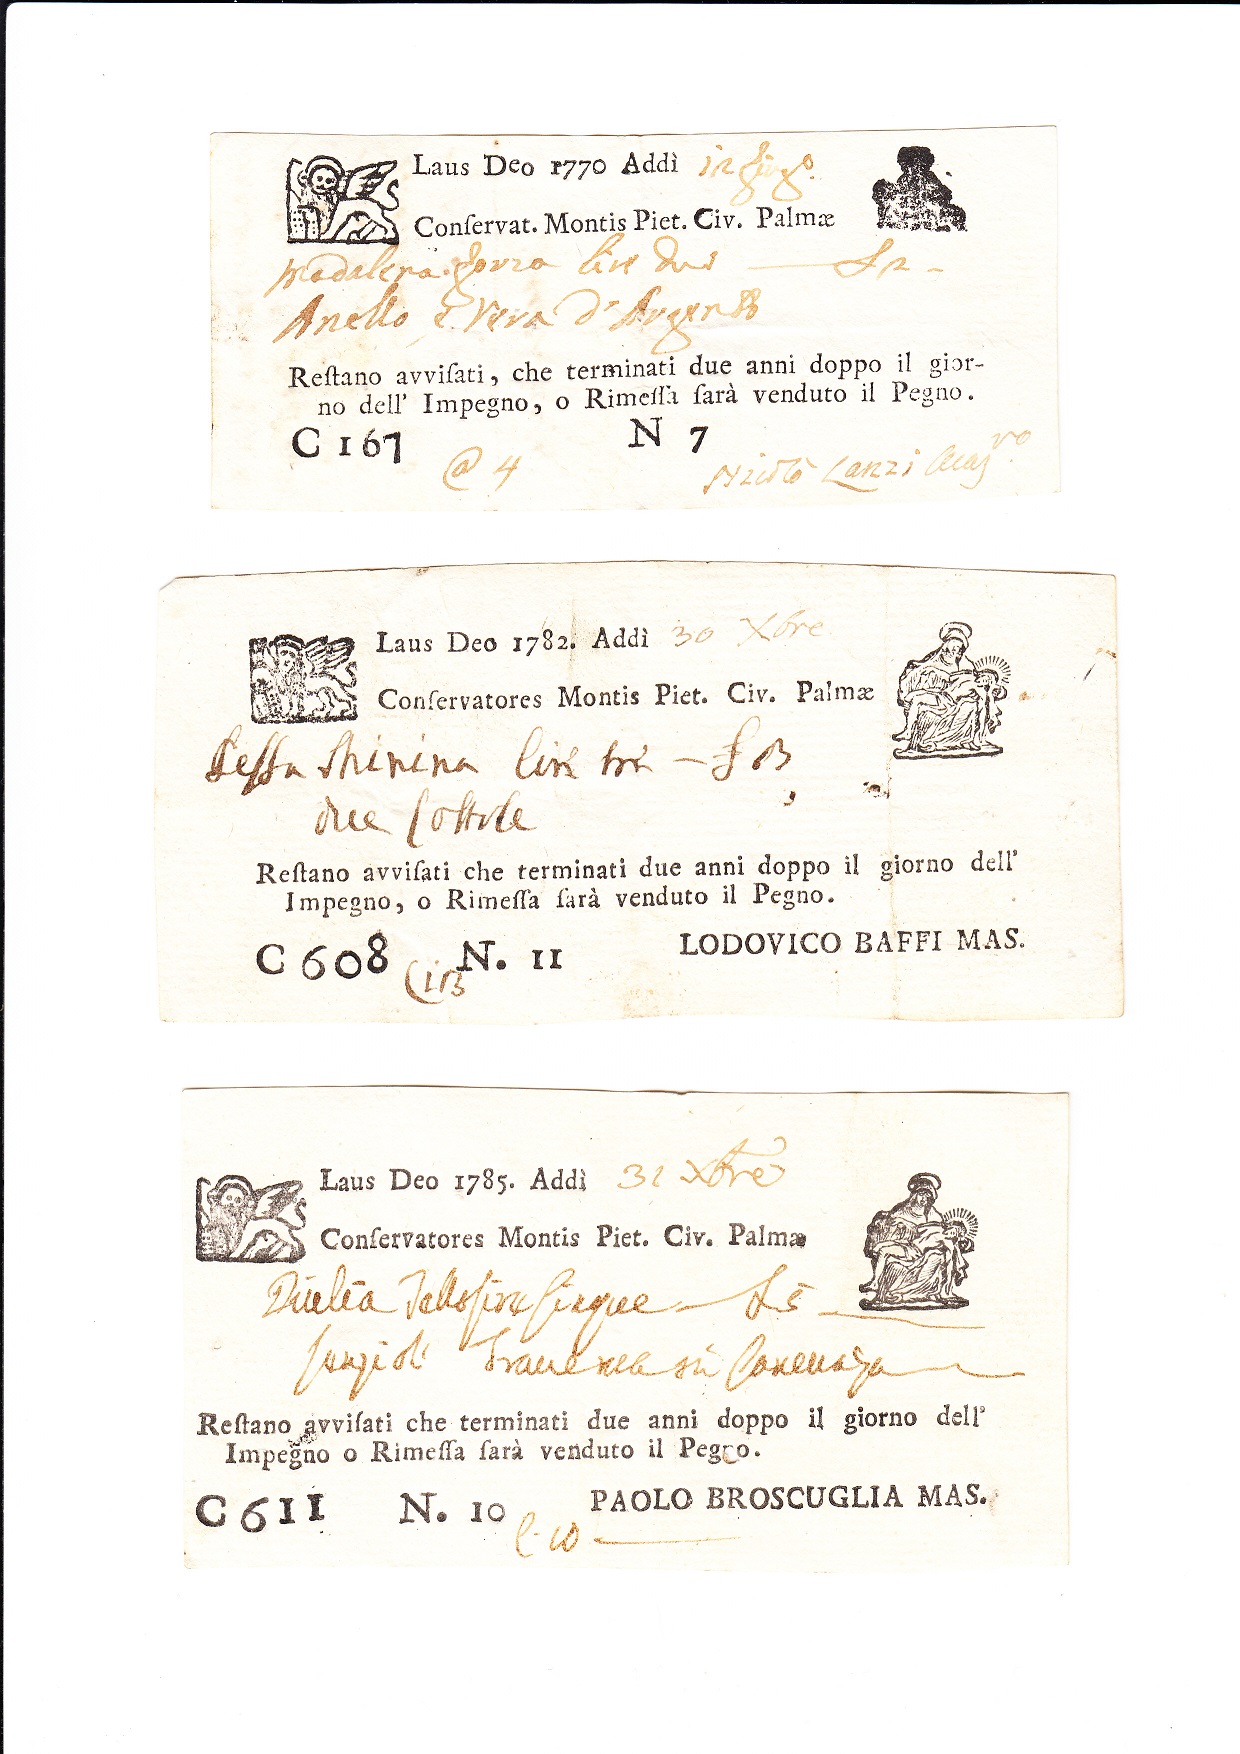 Laus Deo 1770 Addì 12
Conſervat. Montis Piet. Civ. Palmæ
Madalena lire due
Anello e Vera d'Argento
Reſtano avviſati, che terminati due anni doppo il gior-
no dell' Impegno, o Rimeſſa ſarà venduto il Pegno.
C 167 N 7
@ 4 Nicolò Lanzi
Laus Deo 1782. Addì 30 Xbre
Conſervatores Montis Piet. Civ. Palmæ
lire tre
due
Reſtano avviſati che terminati due anni doppo il giorno dell'
Impegno, o Rimeſſa ſarà venduto il Pegno.
C 608 N. 11 LODOVICO BAFFI MAS.
Laus Deo 1785. Addì 31 Xbre
Conſervatores Montis Piet. Civ. Palmæ
Reſtano avviſati che terminati due anni doppo il giorno dell'
Impegno o Rimeſſa ſarà venduto il Pegno.
C 611 N. 10 PAOLO BROSCUGLIA MAS.